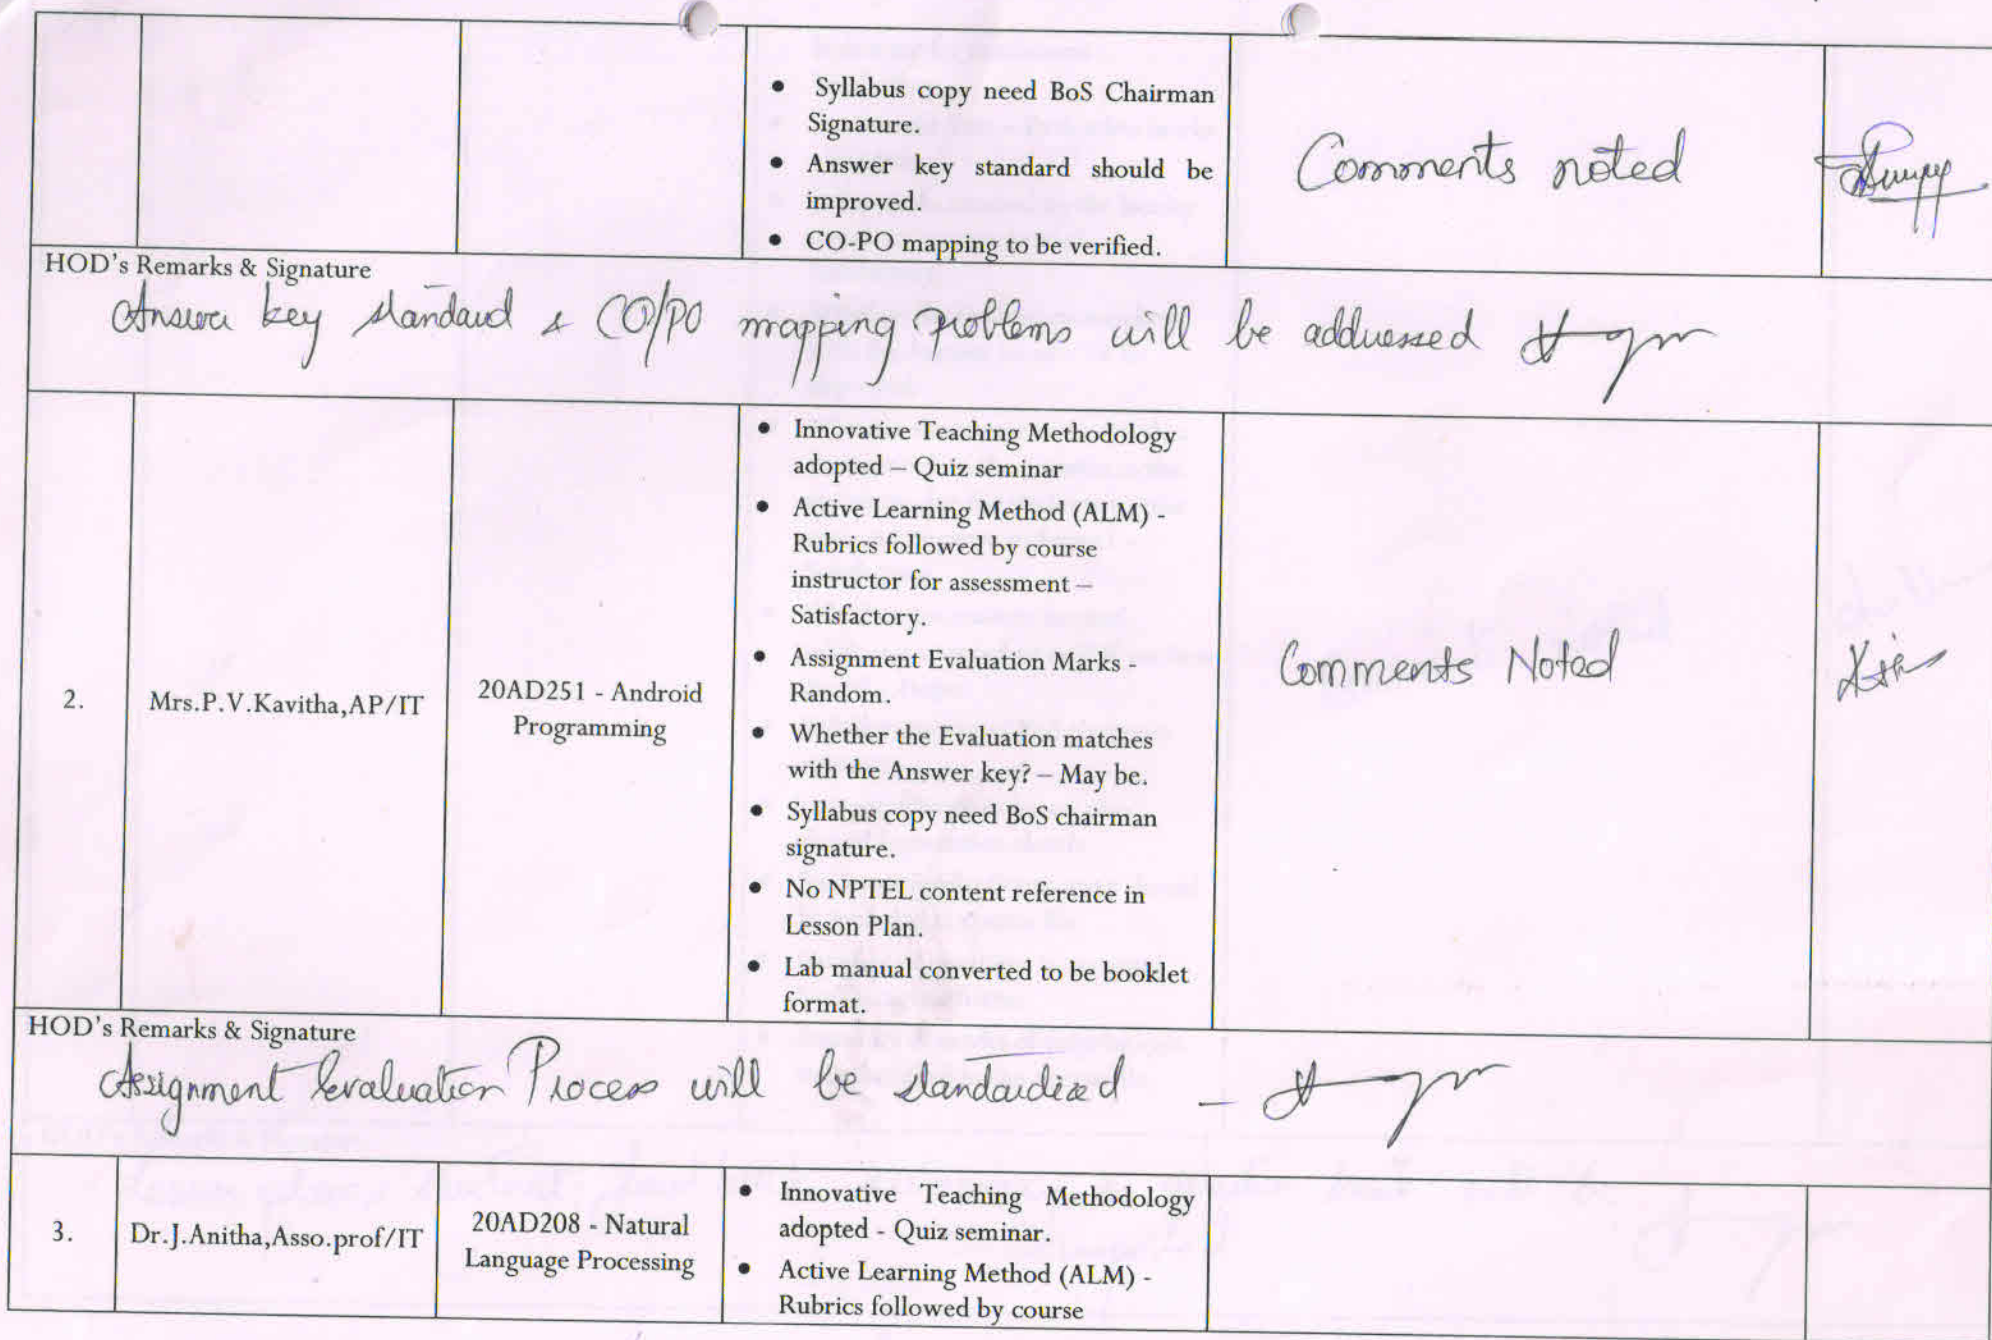 • Syllabus copy need BoS Chairman
Signature.
• Answer key standard should be
improved.
• CO-PO mapping to be verified.
Comments noted
HOD's Remarks & Signature
Answer key standard & CO/PO mapping problems will be addressed
2.
Mrs.P.V.Kavitha,AP/IT
20AD251 - Android
Programming
• Innovative Teaching Methodology
adopted – Quiz seminar
• Active Learning Method (ALM) -
Rubrics followed by course
instructor for assessment –
Satisfactory.
• Assignment Evaluation Marks -
Random.
• Whether the Evaluation matches
with the Answer key? – May be.
• Syllabus copy need BoS chairman
signature.
• No NPTEL content reference in
Lesson Plan.
• Lab manual converted to be booklet
format.
Comments Noted
HOD's Remarks & Signature
Assignment Evaluation Process will be standardized -
3.
Dr.J.Anitha,Asso.prof/IT
20AD208 - Natural
Language Processing
• Innovative Teaching Methodology
adopted - Quiz seminar.
• Active Learning Method (ALM) -
Rubrics followed by course